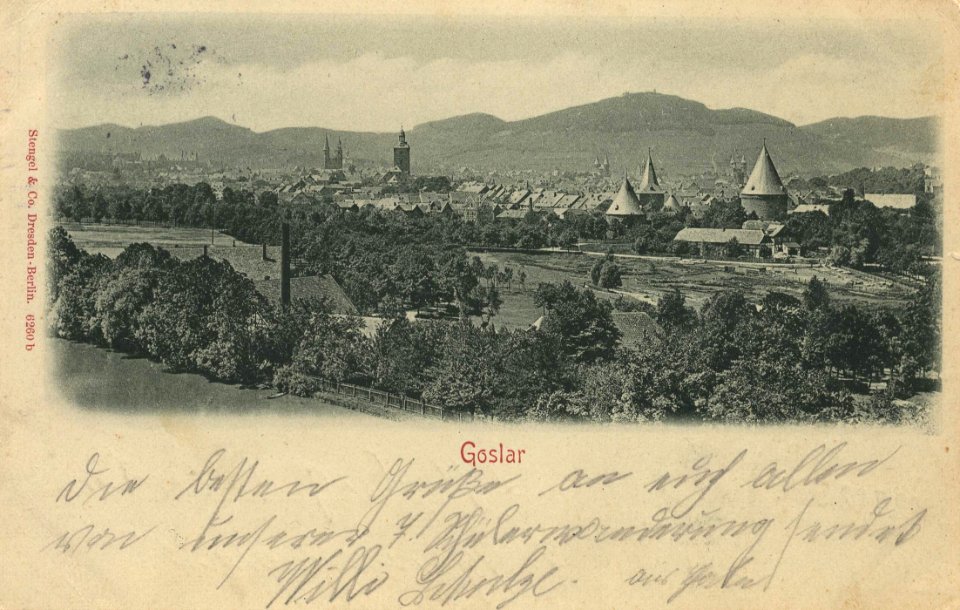 Stengel & Co. Dresden-Berlin. 6260 b
Goslar
die besten Grüße an euch allen
von unserer 7 Schülerwanderung sendet
Willi Schulze. aus